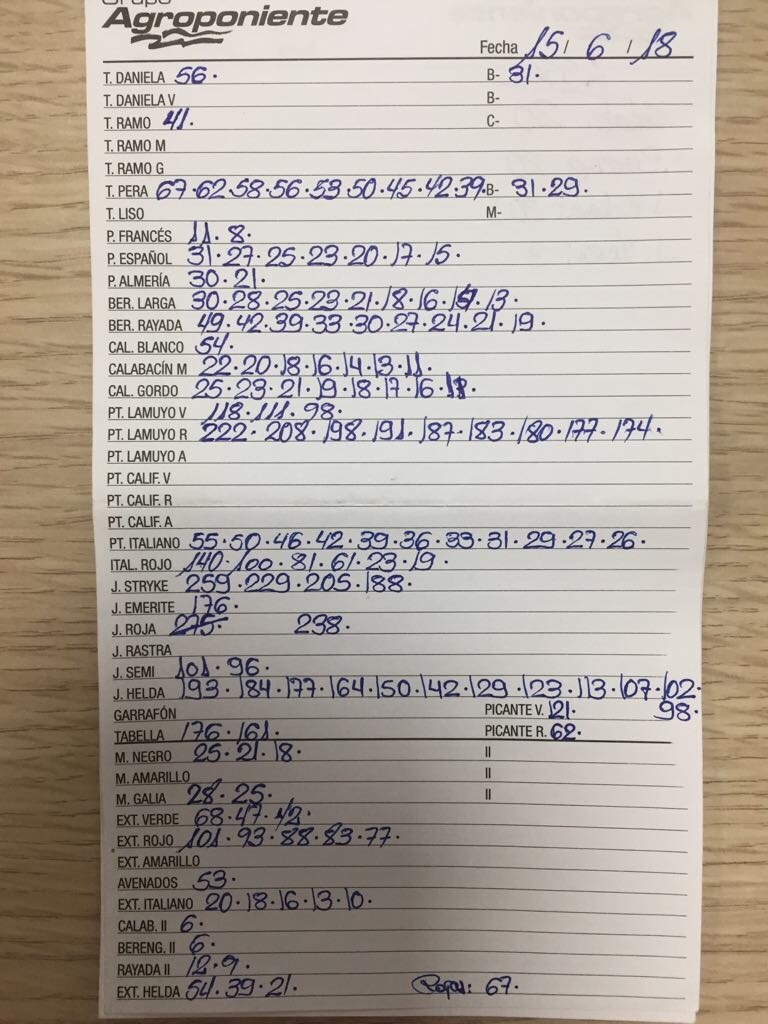 Grupo
Agroponiente
Fecha 15/ 6 /18
T. DANIELA 56. B- 31.
T. DANIELA V B-
T. RAMO 41. C-
T. RAMO M
T. RAMO G
T. PERA 67.62.58.56.53.50.45.42.39. B- 31.29.
T. LISO M-
P. FRANCÉS 11. 8.
P. ESPAÑOL 31.27.25.23.20.17.15.
P. ALMERÍA 30.21.
BER. LARGA 30.28.25.23.21.18.16. 13.
BER. RAYADA 49.42.39.33.30.27.24.21.19.
CAL. BLANCO 54.
CALABACÍN M 22.20.18.16.14.13.11.
CAL. GORDO 25.23.21.19.18.17.16.
PT. LAMUYO V 118.111.98.
PT. LAMUYO R 222.208.198.191.187.183.180.177.174.
PT. LAMUYO A
PT. CALIF. V
PT. CALIF. R
PT. CALIF. A
PT. ITALIANO 55.50.46.42.39.36.33.31.29.27.26.
ITAL. ROJO 140.100.81.61.23.19.
J. STRYKE 259.229.205.188.
J. EMERITE 176.
J. ROJA 275 238.
J. RASTRA
J. SEMI 101.96.
J. HELDA 193.184.177.164.150.142.129.123.113.107.102.
GARRAFÓN PICANTE V. 21. 98.
TABELLA 176.161. PICANTE R. 62.
M. NEGRO 25.21.18. II
M. AMARILLO II
M. GALIA 28.25. II
EXT. VERDE 68.47.42.
EXT. ROJO 101.93.88.83.77.
EXT. AMARILLO
AVENADOS 53.
EXT. ITALIANO 20.18.16.13.10.
CALAB. II 6.
BERENG. II 6.
RAYADA II 12.9.
EXT. HELDA 54.39.21. Rojas: 67.